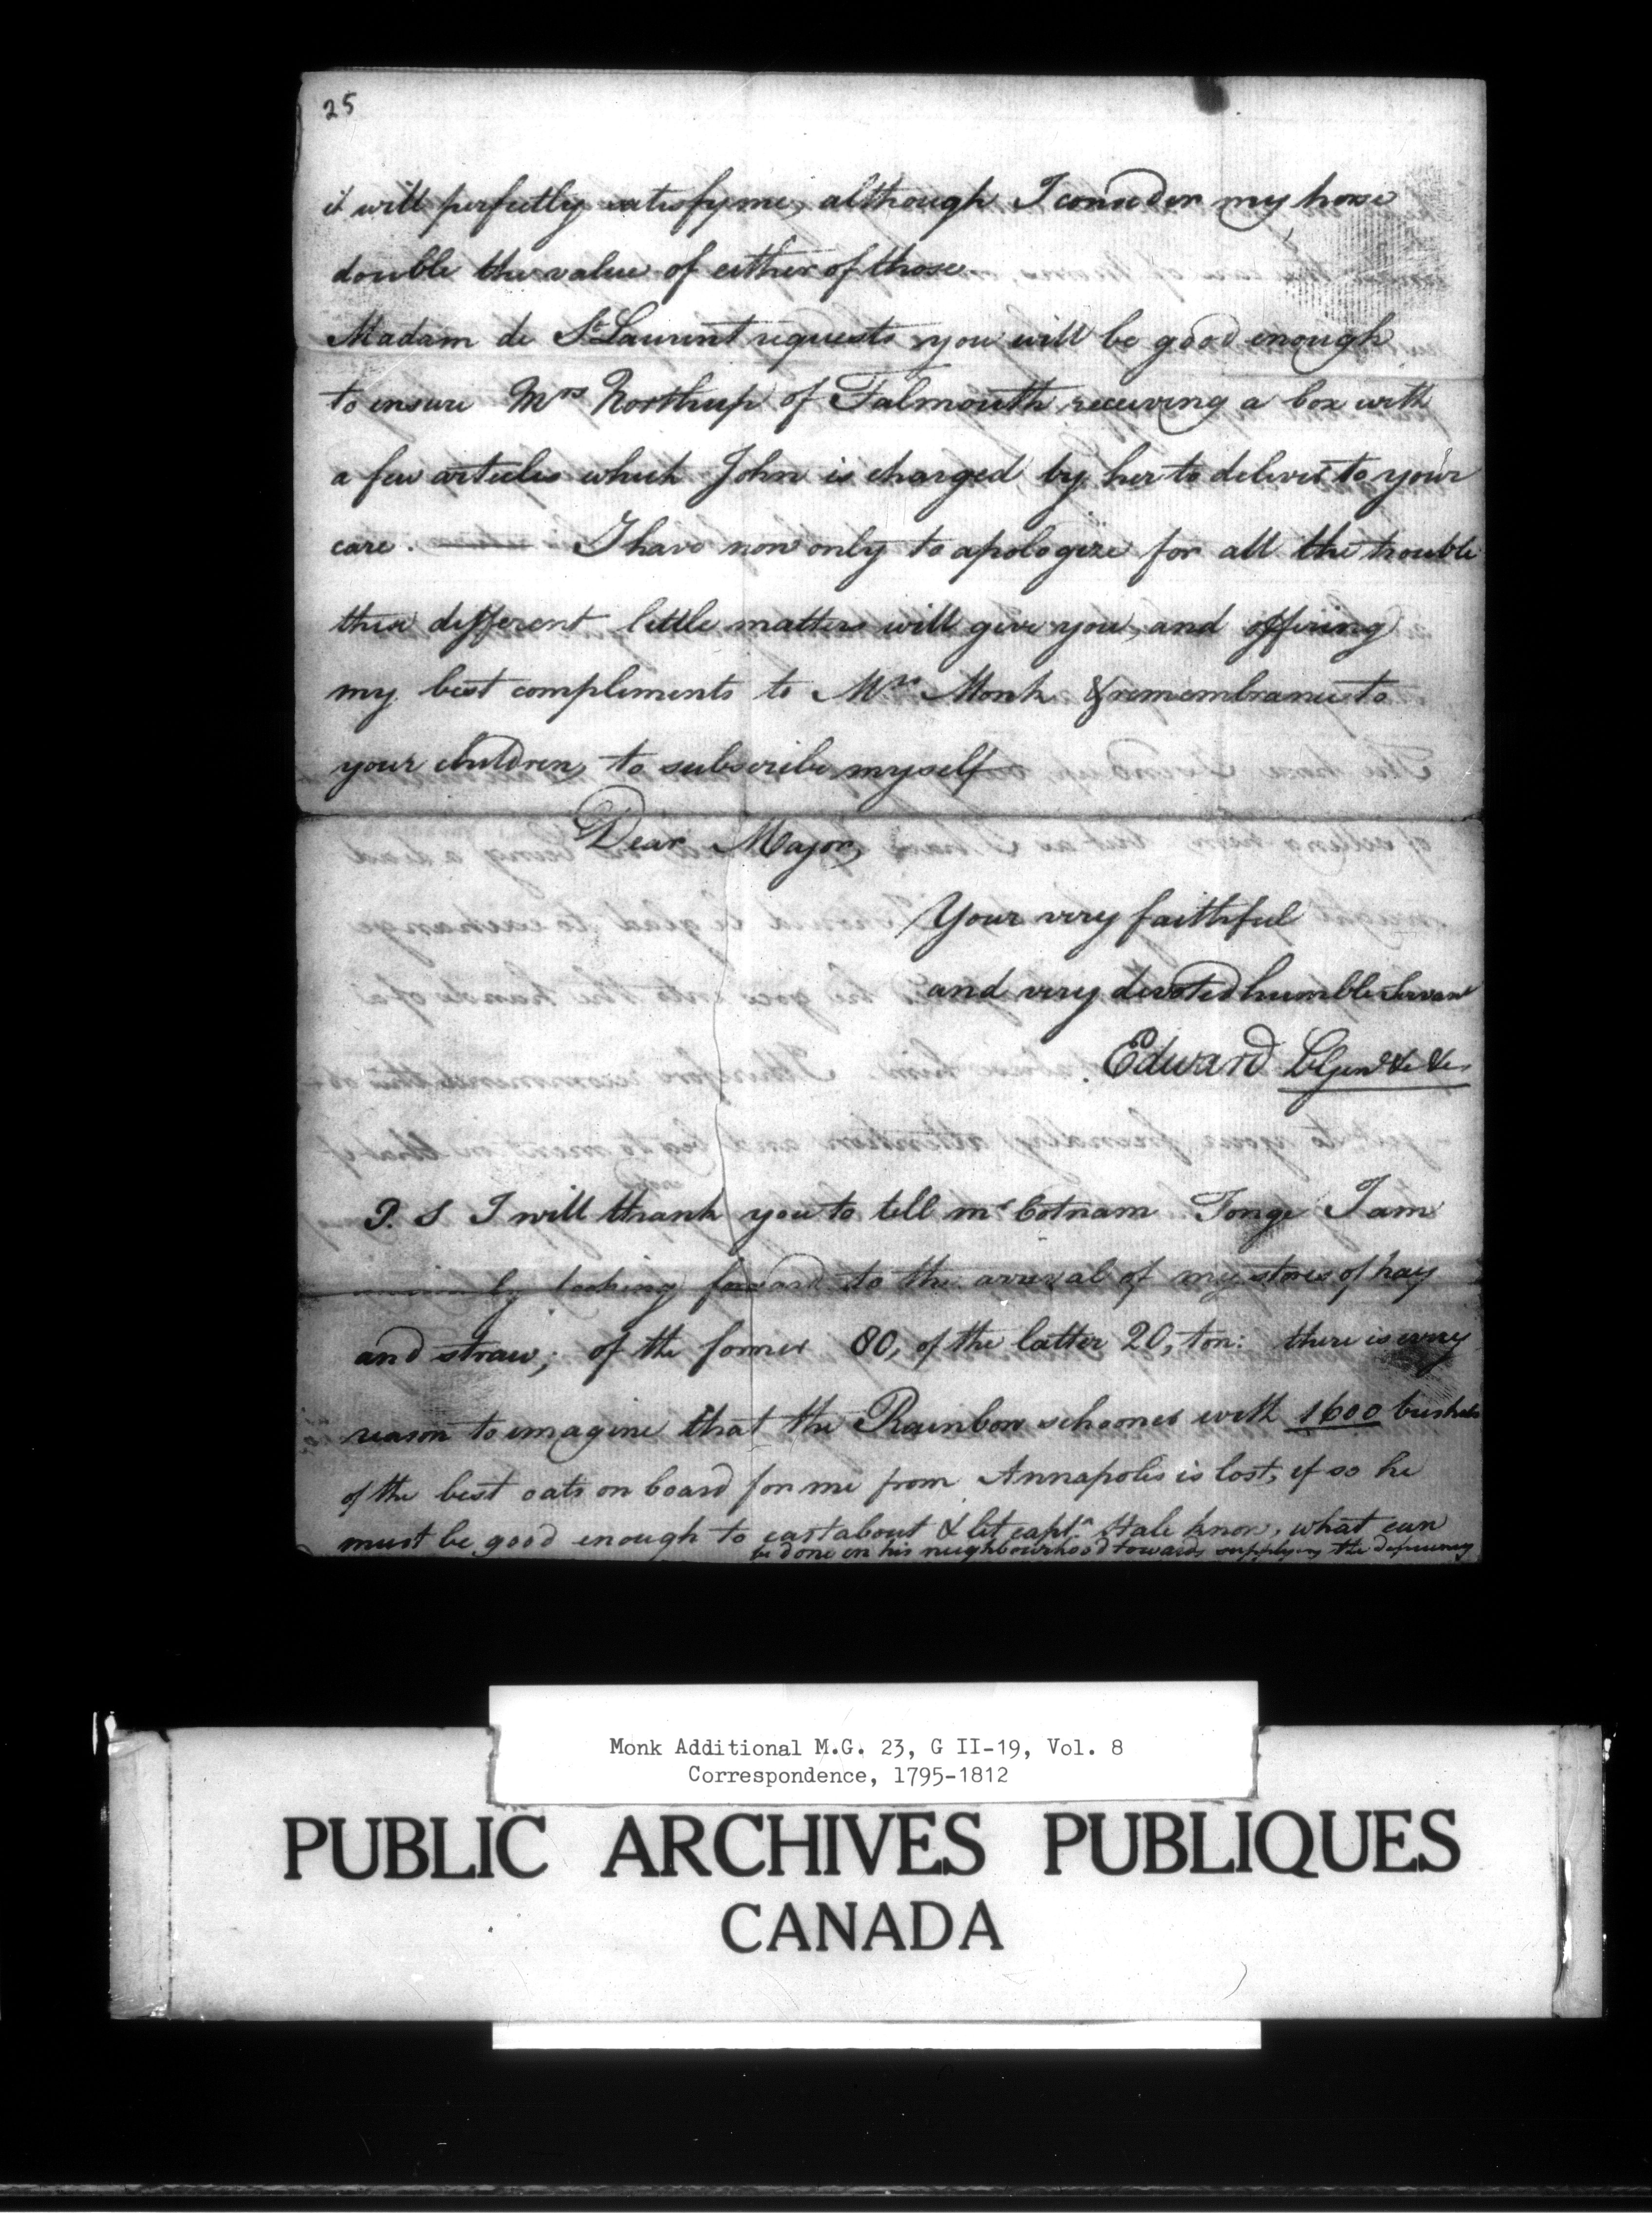 25
it will perfectly satisfy me, although I consider my horse
double the value of either of those.
Madam de St. Laurent requests you will be good enough
to ensure Mrs Northup of Falmouth receiving a box with
a few articles which John is charged by her to deliver to your
care. — I have now only to apologize for all the trouble
these different little matters will give you, and offering
my best compliments to Mrs Monk & remembrance to
your children, to subscribe myself
Dear Major,
Your very faithful
and very devoted humble Servant
Edward Lt Genl &c &c
P. S I will thank you to tell Mr Cotnam Tonge I am
looking forward to the arrival of my stores of hay
and straw; of the former 80, of the latter 20, ton: there is every
reason to imagine that the Rainbow schooner with 1600 bushels
of the best oats on board for me from Annapolis is lost, if so he
must be good enough to cast about & let captn Hale know, what can
be done in his neighbourhood towards supplying the deficiency
Monk Additional M.G. 23, G II-19, Vol. 8
Correspondence, 1795-1812
PUBLIC ARCHIVES PUBLIQUES
CANADA